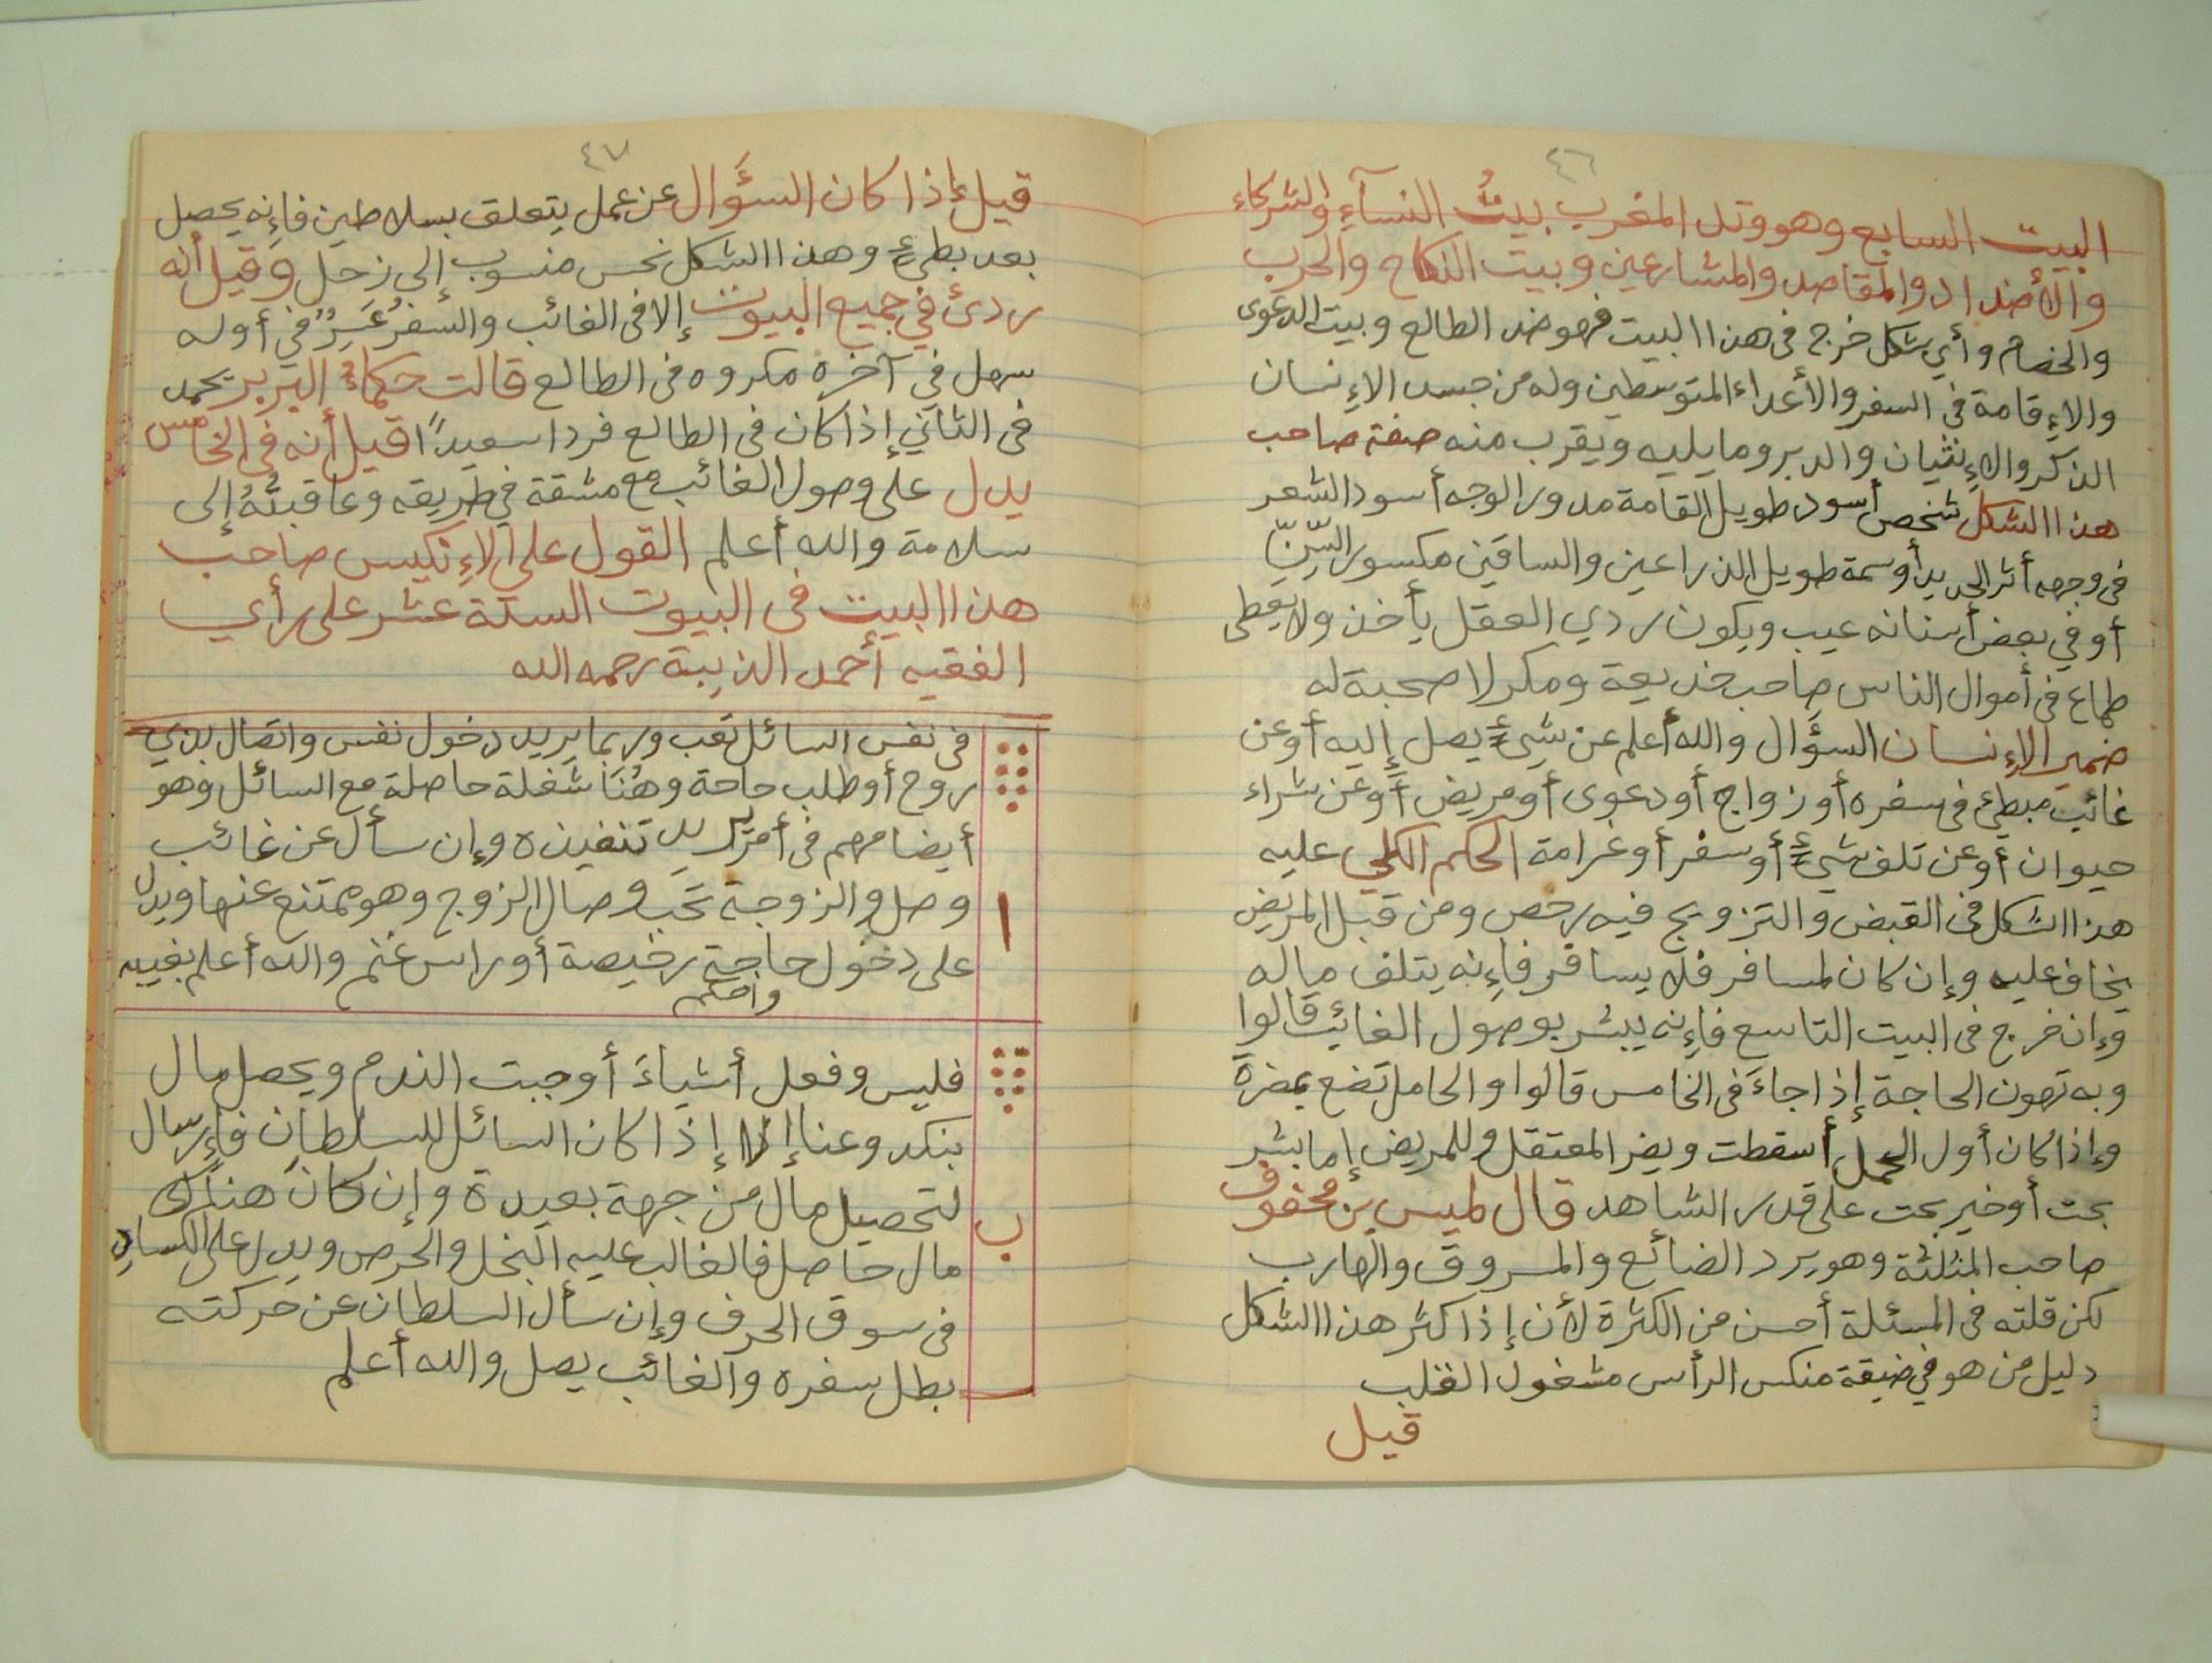 ٤٦
البيت السابع وهو وتد المغرب بيتُ النسآءِ والشركاء
والأضداد والمقاصد والمشارعين وبيت النكاح والحرب
والخصام وأي شكل خرج فى هذا البيت فهو ضد الطالع وبيت الدعوى
والإقامة فى السفر والأعداء المتوسطين وله من جسد الإنسان
الذكر والإنثيان والدبر وما يليه ويقرب منه صفة صاحب
هذا الشكل شخص أسود طويل القامة مدور الوجه أسود الشعر
فى وجهه أثر الحديد أو سمة طويل الذراعين والساقين مكسور السِّنِّ
أو في بعض أسنانه عيب ويكون ردي العقل يأخذ ولا يعطى
طماع فى أموال الناس صاحب خديعة ومكر لا صحبة له
ضمير الإنسان السؤال والله أعلم عن شيءٍ يصل إليه أو عن
غائب مبطئ فى سفره أو زواج أو دعوى أو مريض أو عن شراء
حيوان أو عن تلف شيءٍ أو سفر أو غرامة الحكم الكلي عليه
هذا الشكل فى القبض والتزويج فيه رخص ومن قبل المريض
يخاف عليه وإن كان لمسافر فلا يسافر فإنه يتلف ماله
وإن خرج فى البيت التاسع فإنه يبشر بوصول الغائب قالوا
وبه تهون الحاجة إذا جاءَ فى الخامس قالوا والحامل تضع بمضرة
وإذا كان أول الحمل أسقطت ويضر المعتقل وللمريض إما بشر
بحت أو خير بحت على قدر الشاهد قال لميس بن مخفوف
صاحب المثلثة وهو يرد الضائع والمسروق والهارب
لكن قلته فى المسئلة أحسن من الكثرة لأن إذا كثر هذا الشكل
دليل من هو في ضيقة منكس الرأس مشغول القلب
قيل
٤٧
قيل إذا كان السؤال عن عمل يتعلق بسلاطين فإنه يحصل
بعد بطئٍ وهذا الشكل نحس منسوب إلى زحل وقيل أنه
ردئ في جميع البيوت إلا فى الغائب والسفر عَسِرٌ في أوله
سهل في آخره مكروه فى الطالع قالت حكماء البربر يحمد
فى الثاني إذا كان فى الطالع فردا سعيداً قيل أنه فى الخامس
يدل على وصول الغائب مع مشقة في طريقه وعاقبتُهُ إلى
سلامة والله أعلم القول على الإنكيس صاحب
هذا البيت فى البيوت الستة عشر على رأي
الفقيه أحمد الذيبة رحمه الله
فى نفس السائل تعب وربما يريد دخول نفس واتصال بذي
روح أو طلب حاجة وهُنَا شغلة حاصلة مع السائل وهو
أيضا مهم فى أمر يريد تنفيذه وإن سأل عن غائب
ا
وصل والزوجة تحب وصال الزوج وهو ممتنع عنها ويدل
على دخول حاجة رخيصة أو راس غنم والله أعلم بغيبه
وأحكم
فليس وفعل أشياءَ أوجبت الندم ويحصل مال
بنكد وعنا إلا إذا كان السائل للسلطان فإرسال
لتحصيل مال من جهة بعيدة وإن كان هناك
ب
مال حاصل فالغالب عليه البخل والحرص ويدل على الكساد
فى سوق الحرف وإن سأل السلطان عن حركته
بطل سفره والغائب يصل والله أعلم